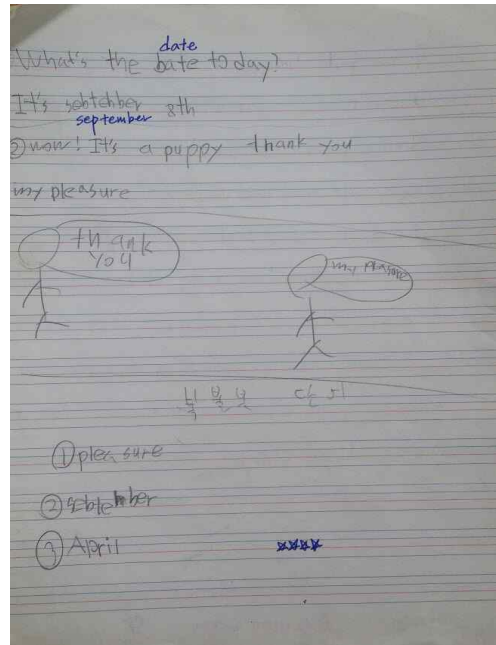 date
What's the bate today?
It's sebtehber 8th
september
② now! It's a puppy thank you
my pleasure
thank
you
my pleasure
① pleasure
② sebtehber
③ April